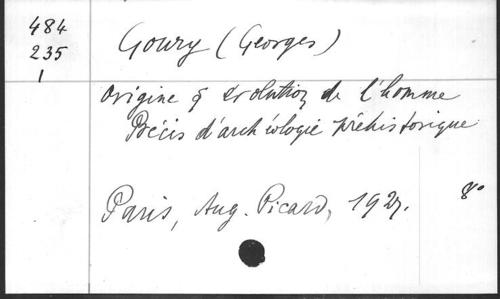 484
235
1
Goury (Georges)
Origine & Evolution de l'homme
Précis d'archéologie préhistorique
Paris, Aug. Picard, 1927. 8°